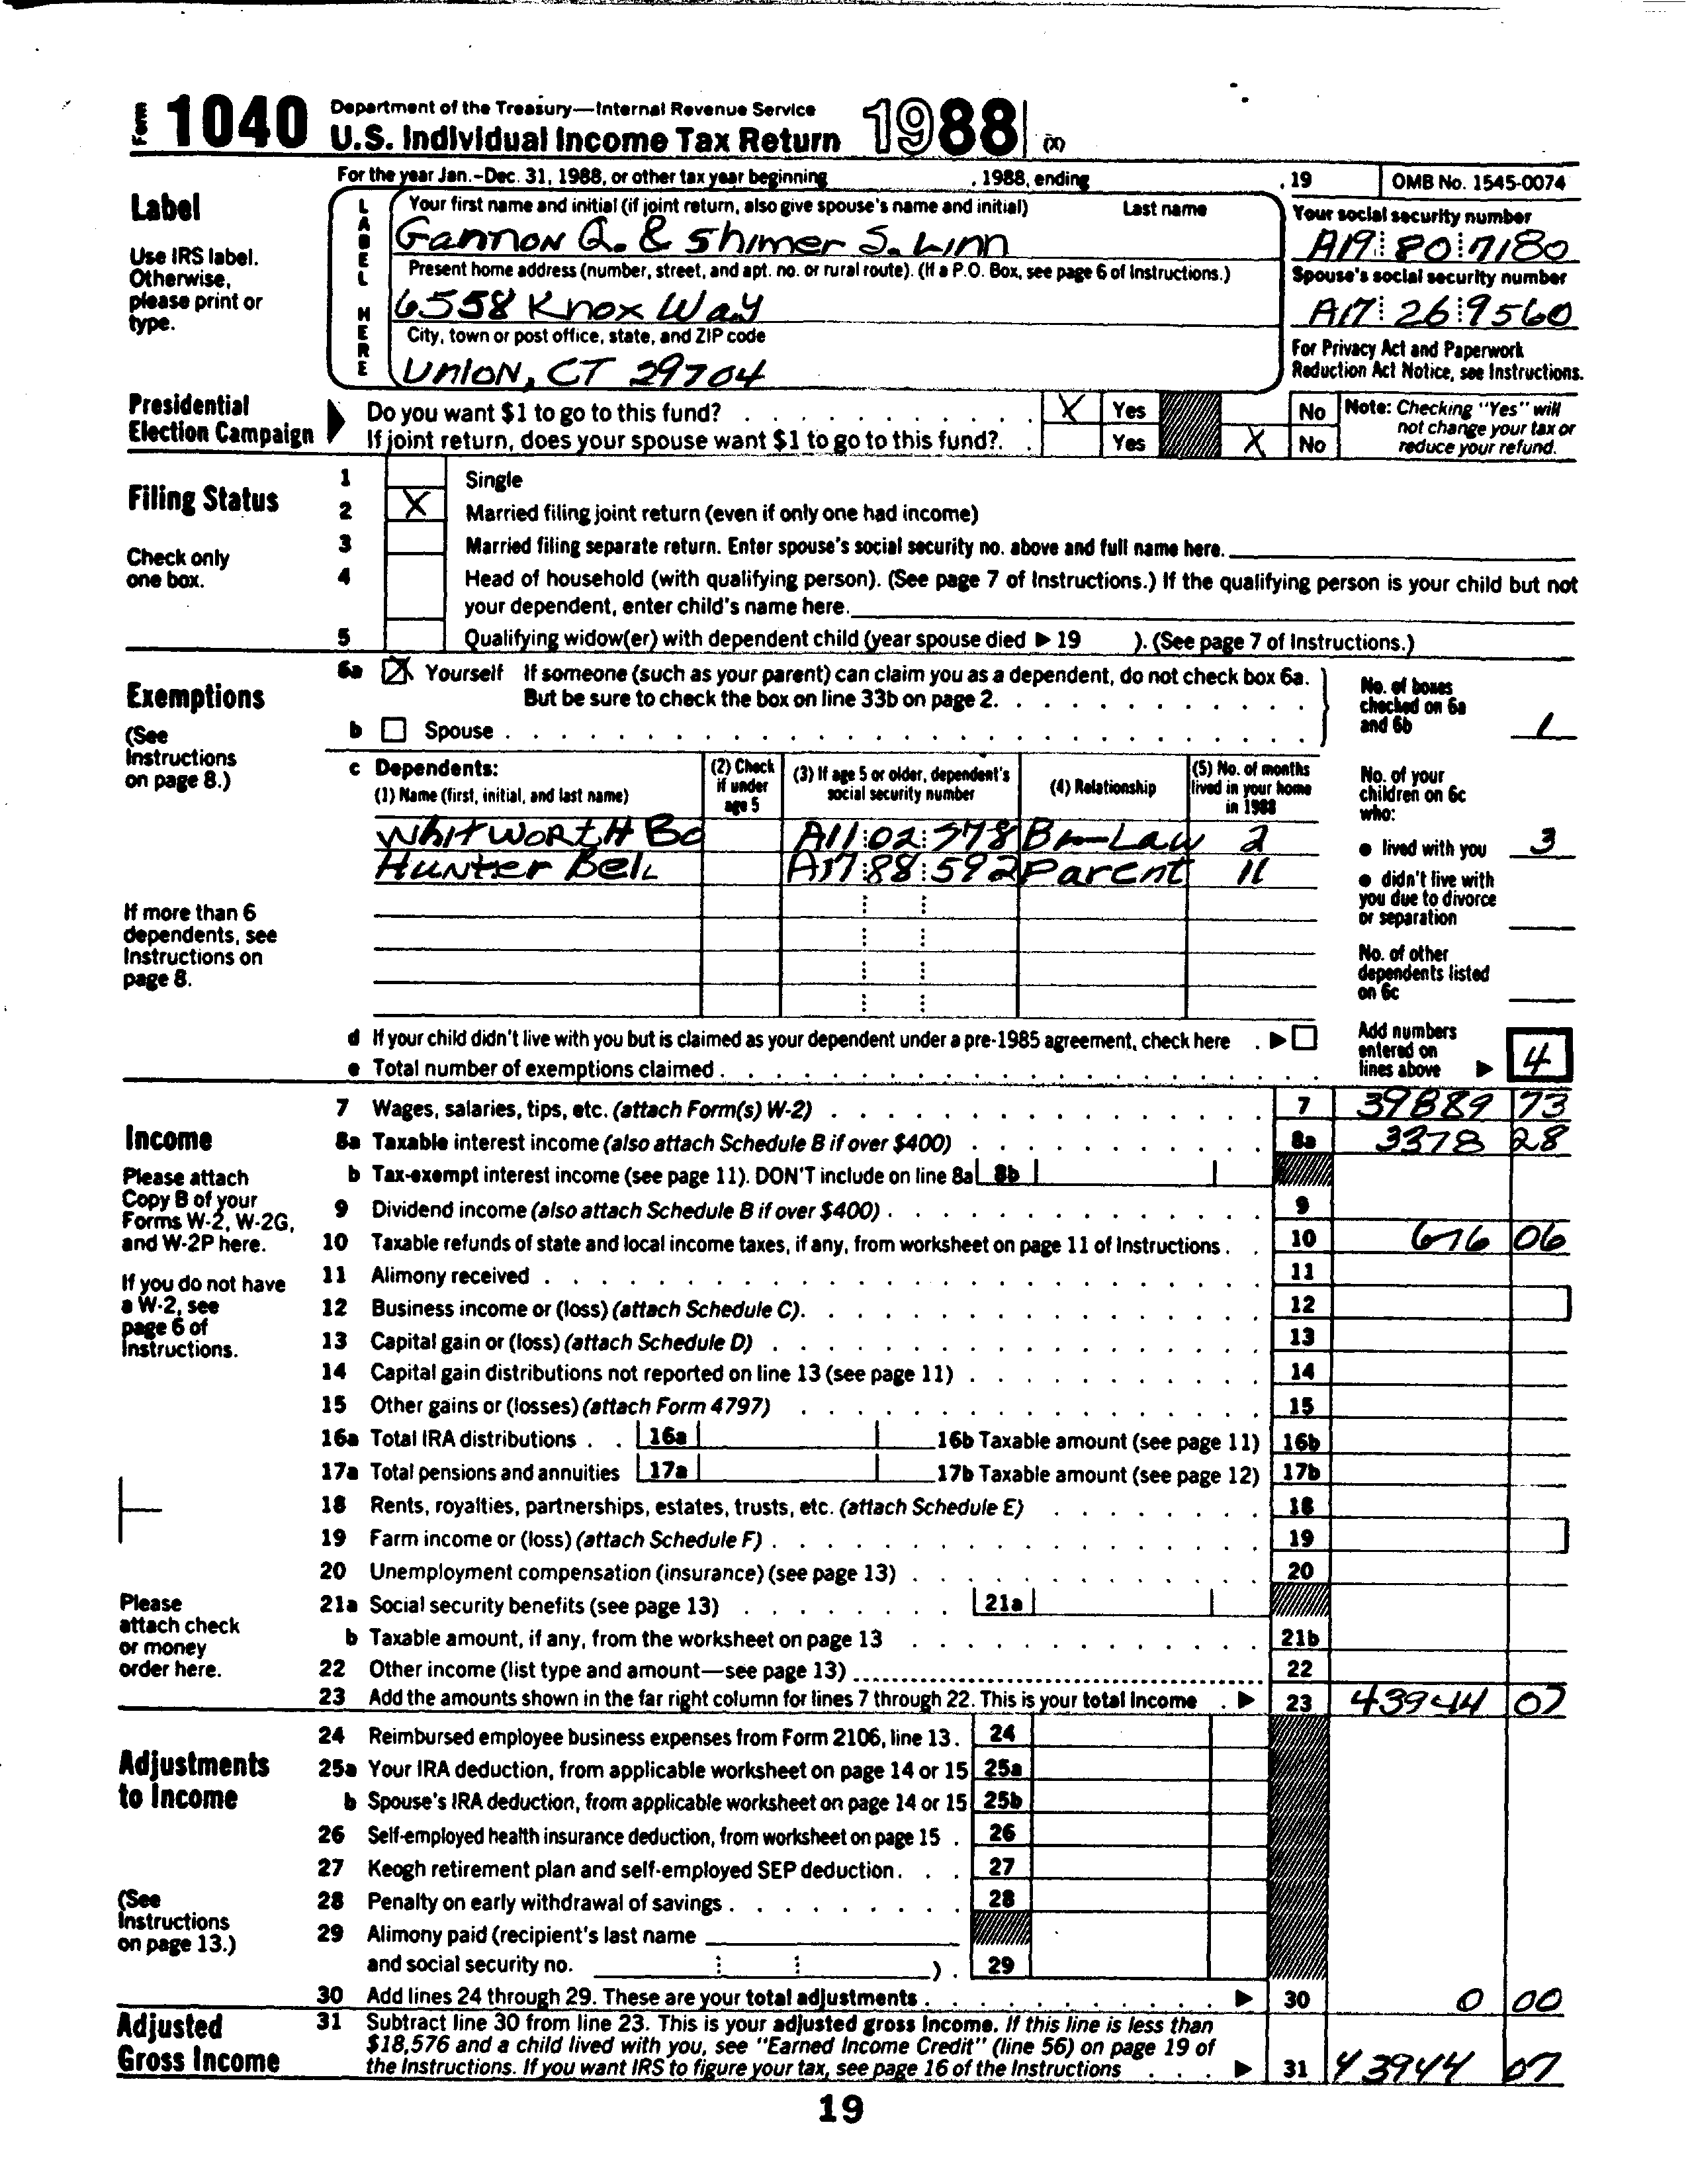 Form 1040 Department of the Treasury—Internal Revenue Service
U.S. Individual Income Tax Return 1988 (X)
For the year Jan.-Dec. 31, 1988, or other tax year beginning , 1988, ending , 19 OMB No. 1545-0074
Label
Use IRS label. Otherwise, please print or type.
LABEL HERE
Your first name and initial (if joint return, also give spouse's name and initial) Last name
Gannon Q. & Shimer S. Linn
Your social security number
A19 80 7180
Present home address (number, street, and apt. no. or rural route). (If a P.O. Box, see page 6 of Instructions.)
6558 Knox Way
Spouse's social security number
A17 26 9560
City, town or post office, state, and ZIP code
Union, CT 29704
For Privacy Act and Paperwork Reduction Act Notice, see Instructions.
Presidential Election Campaign
Do you want $1 to go to this fund? X Yes No
If joint return, does your spouse want $1 to go to this fund? Yes X No
Note: Checking "Yes" will not change your tax or reduce your refund.
Filing Status
Check only one box.
1 Single
2 X Married filing joint return (even if only one had income)
3 Married filing separate return. Enter spouse's social security no. above and full name here.
4 Head of household (with qualifying person). (See page 7 of Instructions.) If the qualifying person is your child but not
your dependent, enter child's name here.
5 Qualifying widow(er) with dependent child (year spouse died ▶ 19 ). (See page 7 of Instructions.)
Exemptions
(See Instructions on page 8.)
6a X Yourself If someone (such as your parent) can claim you as a dependent, do not check box 6a.
But be sure to check the box on line 33b on page 2.
b Spouse
No. of boxes checked on 6a and 6b 1
c Dependents:
(1) Name (first, initial, and last name) (2) Check if under age 5 (3) If age 5 or older, dependent's social security number (4) Relationship (5) No. of months lived in your home in 1988
Whitworth Bo A11 02 578 Br-Law 2
Hunter Bell A17 88 592 Parent 11
No. of your children on 6c who:
• lived with you 3
• didn't live with you due to divorce or separation
No. of other dependents listed on 6c
If more than 6 dependents, see Instructions on page 8.
d If your child didn't live with you but is claimed as your dependent under a pre-1985 agreement, check here ▶
e Total number of exemptions claimed
Add numbers entered on lines above ▶ 4
Income
Please attach Copy B of your Forms W-2, W-2G, and W-2P here.
If you do not have a W-2, see page 6 of Instructions.
Please attach check or money order here.
7 Wages, salaries, tips, etc. (attach Form(s) W-2) 7 39889 73
8a Taxable interest income (also attach Schedule B if over $400) 8a 3378 28
b Tax-exempt interest income (see page 11). DON'T include on line 8a 8b
9 Dividend income (also attach Schedule B if over $400) 9
10 Taxable refunds of state and local income taxes, if any, from worksheet on page 11 of Instructions 10 676 06
11 Alimony received 11
12 Business income or (loss) (attach Schedule C) 12
13 Capital gain or (loss) (attach Schedule D) 13
14 Capital gain distributions not reported on line 13 (see page 11) 14
15 Other gains or (losses) (attach Form 4797) 15
16a Total IRA distributions 16a 16b Taxable amount (see page 11) 16b
17a Total pensions and annuities 17a 17b Taxable amount (see page 12) 17b
18 Rents, royalties, partnerships, estates, trusts, etc. (attach Schedule E) 18
19 Farm income or (loss) (attach Schedule F) 19
20 Unemployment compensation (insurance) (see page 13) 20
21a Social security benefits (see page 13) 21a
b Taxable amount, if any, from the worksheet on page 13 21b
22 Other income (list type and amount—see page 13) 22
23 Add the amounts shown in the far right column for lines 7 through 22. This is your total income ▶ 23 43944 07
Adjustments to Income
(See Instructions on page 13.)
24 Reimbursed employee business expenses from Form 2106, line 13 24
25a Your IRA deduction, from applicable worksheet on page 14 or 15 25a
b Spouse's IRA deduction, from applicable worksheet on page 14 or 15 25b
26 Self-employed health insurance deduction, from worksheet on page 15 26
27 Keogh retirement plan and self-employed SEP deduction 27
28 Penalty on early withdrawal of savings 28
29 Alimony paid (recipient's last name
and social security no. ) 29
30 Add lines 24 through 29. These are your total adjustments ▶ 30 0 00
Adjusted Gross Income
31 Subtract line 30 from line 23. This is your adjusted gross income. If this line is less than
$18,576 and a child lived with you, see "Earned Income Credit" (line 56) on page 19 of
the Instructions. If you want IRS to figure your tax, see page 16 of the Instructions ▶ 31 43944 07
19